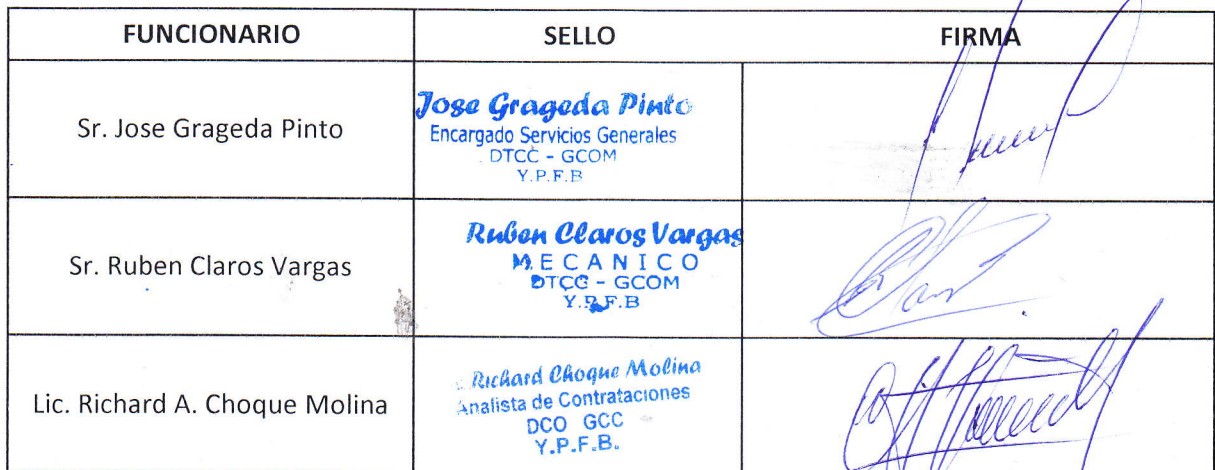 FUNCIONARIO SELLO FIRMA
Sr. Jose Grageda Pinto
Jose Grageda Pinto
Encargado Servicios Generales
DTCC - GCOM
Y.P.F.B
Sr. Ruben Claros Vargas
Ruben Claros Vargas
MECANICO
DTCC - GCOM
Y.P.F.B
Lic. Richard A. Choque Molina
Richard Choque Molina
Analista de Contrataciones
DCO GCC
Y.P.F.B.